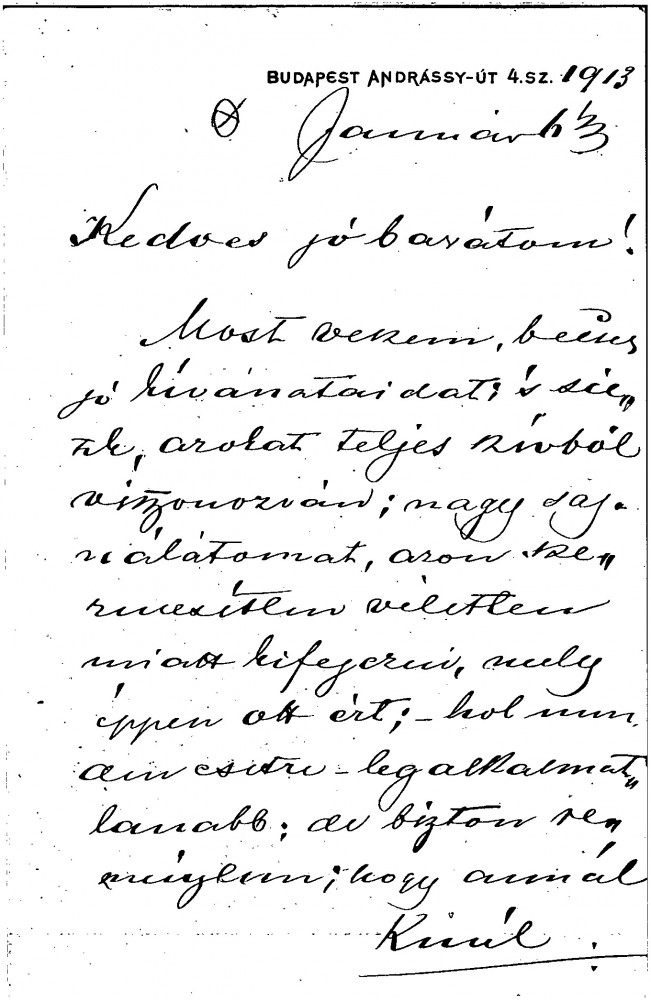 BUDAPEST ANDRÁSSY-ÚT 4.SZ. 1913
Január 6
Kedves jó barátom!
Most vekem, becses
jó kívánataidat; s sie„
tek, azokat teljes szívből
viszonozván; nagy saj-
nálátomat, azon ke„
rmesítlen véletlen
miatt kifejezni, mely
éppen ott ért; – hol min
den esetre – legalkalmat„
lanabb; de bizton re„
ménylem; hogy annál